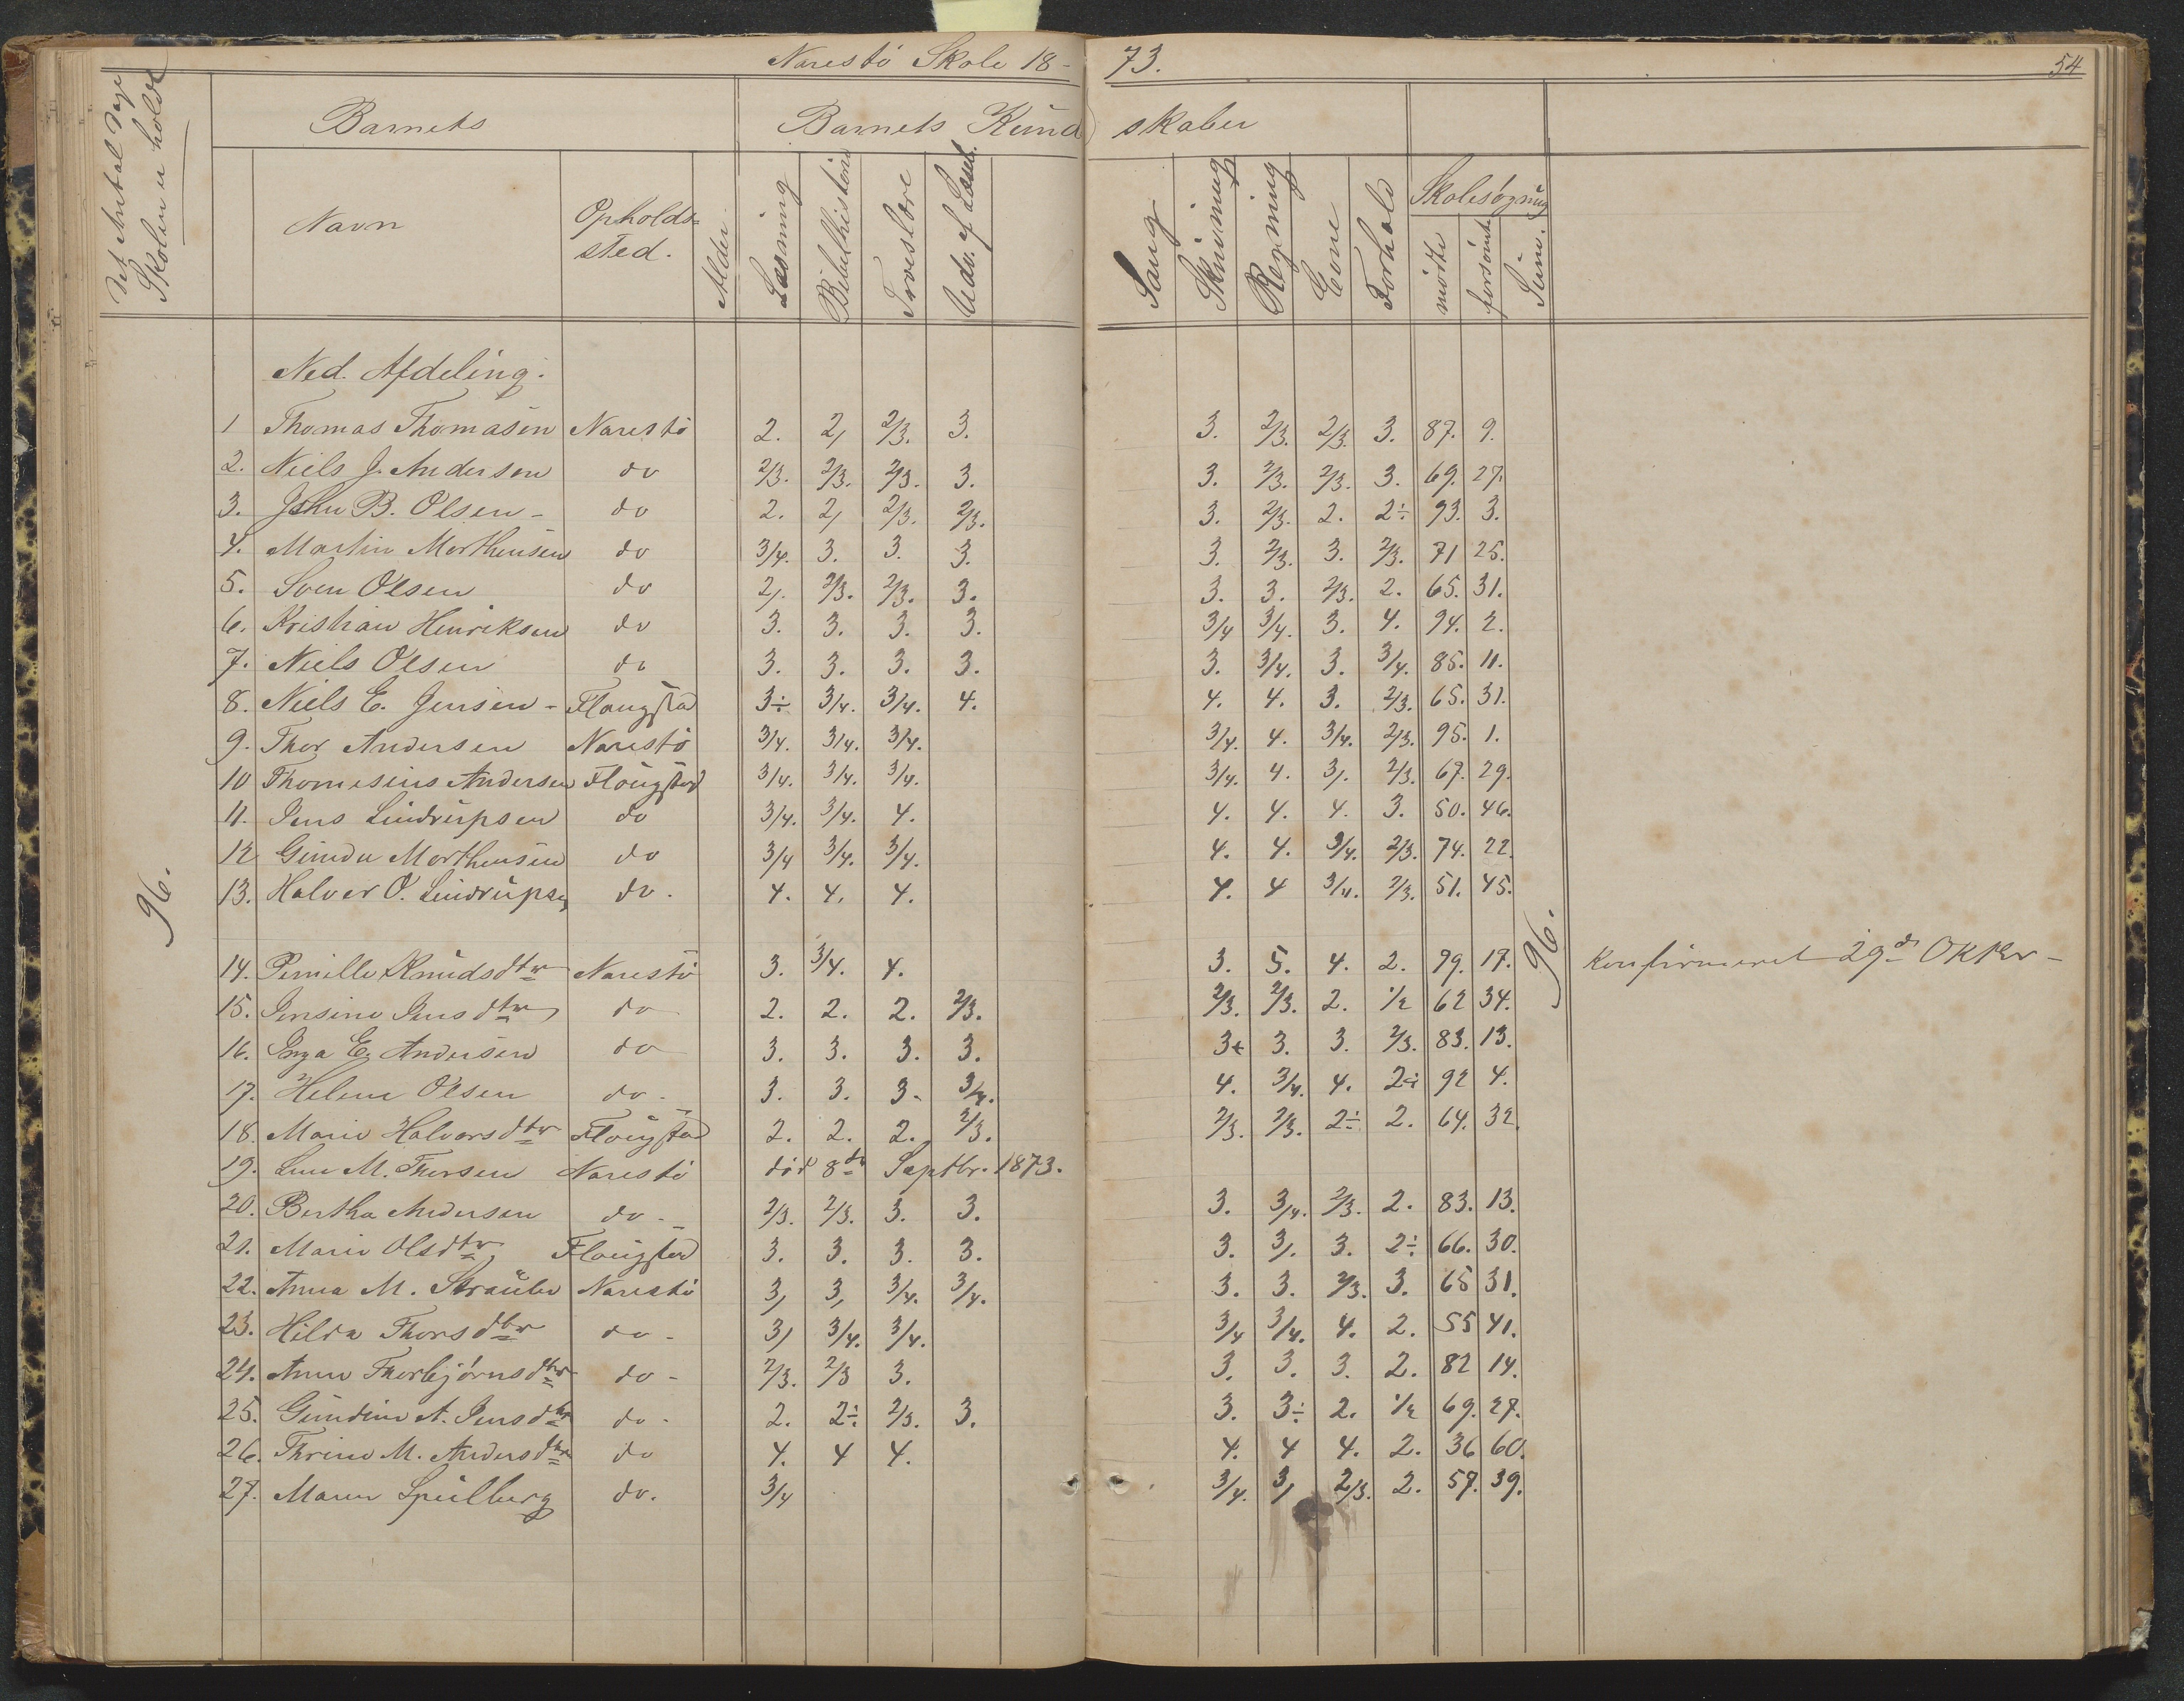 Narestö Skole 18-73. 54
Det Antal Dage
Skolen er holdt
Barnets Barnets Kundskaber
Navn Opholds-
sted. Alder. Læsning Bibelhistorie Troeslære Udv. af Læseb. Sang Skrivning Regning Evne Forhold Skolesøgning
mødte forsömte Sum.
Ned. Afdeling.
1 Thomas Thomasen Narestö 2. 2, 2/3. 3. 3. 2/3. 2/3. 3. 87. 9.
2. Niels J. Andersen do 2/3. 2/3. 2/3. 3. 3. 2/3. 2/3. 3. 69. 27.
3. John B. Olsen - do 2. 2, 2/3. 2/3. 3. 2/3. 2. 2÷ 93. 3.
4. Martin Morthensen do 3/4. 3. 3. 3. 3. 2/3. 3. 2/3. 71 25.
5. Sven Olsen do 2,. 2/3. 2/3. 3. 3. 3. 2/3. 2. 65. 31.
6. Kristian Henriksen do 3. 3. 3. 3. 3/4 3/4. 3. 4. 94. 2.
7. Niels Olsen do 3. 3. 3. 3. 3. 3/4. 3. 3/4. 85. 11.
8. Niels E. Jensen - Flougstad 3÷ 3/4. 3/4. 4. 4. 4. 3. 2/3. 65. 31.
9. Thor Andersen Narestö 3/4. 3/4. 3/4. 3/4. 4. 3/4. 2/3. 95. 1.
10 Thomesius Andersen Flougstad 3/4. 3/4. 3/4. 3/4. 4. 3/. 2/3. 67. 29.
11. Jens Lindrupsen do 3/4. 3/4. 4. 4. 4. 4. 3. 50. 46.
12 Gunder Morthensen do 3/4 3/4. 3/4. 4. 4. 3/4. 2/3. 74. 22.
96.
13. Halvor O. Lindrupsen do. 4. 4. 4. 4. 4 3/4. 2/3. 51. 45.
14. Pernille Knudsdtr Narestö 3. 3/4. 4. 3. 5. 4. 2. 79. 17. 96. Konfirmeret 29de Oktbr -
15. Jensine Jensdtr do 2. 2. 2. 2/3. 2/3. 2/3. 2. 1/2 62 34.
16. Inga E. Andersen do 3. 3. 3. 3. 3+ 3. 3. 2/3. 83. 13.
17. Helene Olsen do - 3. 3. 3- 3/4. 4. 3/4. 4. 2÷ 92 4.
18. Marie Halvorsdtr Flougstad 2. 2. 2. 2/3. 2/3. 2/3. 2÷ 2. 64. 32.
19. Lene M. Thorsen Narestö död 8de Septbr. 1873.
20. Bertha Andersen do - 2/3. 2/3. 3. 3. 3. 3/4. 2/3. 2. 83. 13.
21. Marie Olsdtr Flougstad 3. 3. 3. 3. 3. 3/. 3. 2÷ 66. 30.
22. Anna M. Straube Narestö 3, 3, 3/4. 3/4. 3. 3. 2/3. 3. 65 31.
23. Hilda Thorsdtr do - 3, 3/4. 3/4. 3/4 3/4. 4. 2. 55 41.
24. Anne Thorbjørnsdtr do - 2/3. 2/3 3. 3. 3. 3. 2. 82 14.
25. Gundine A. Jensdtr do - 2. 2÷ 2/3. 3. 3. 3÷ 2. 1/2 69. 27.
26. Thrine M. Andersdtr do 4. 4 4. 4. 4 4. 2. 36 60.
27. Maren Speilberg do. 3/4 3/4. 3, 2/3. 2. 57. 39.